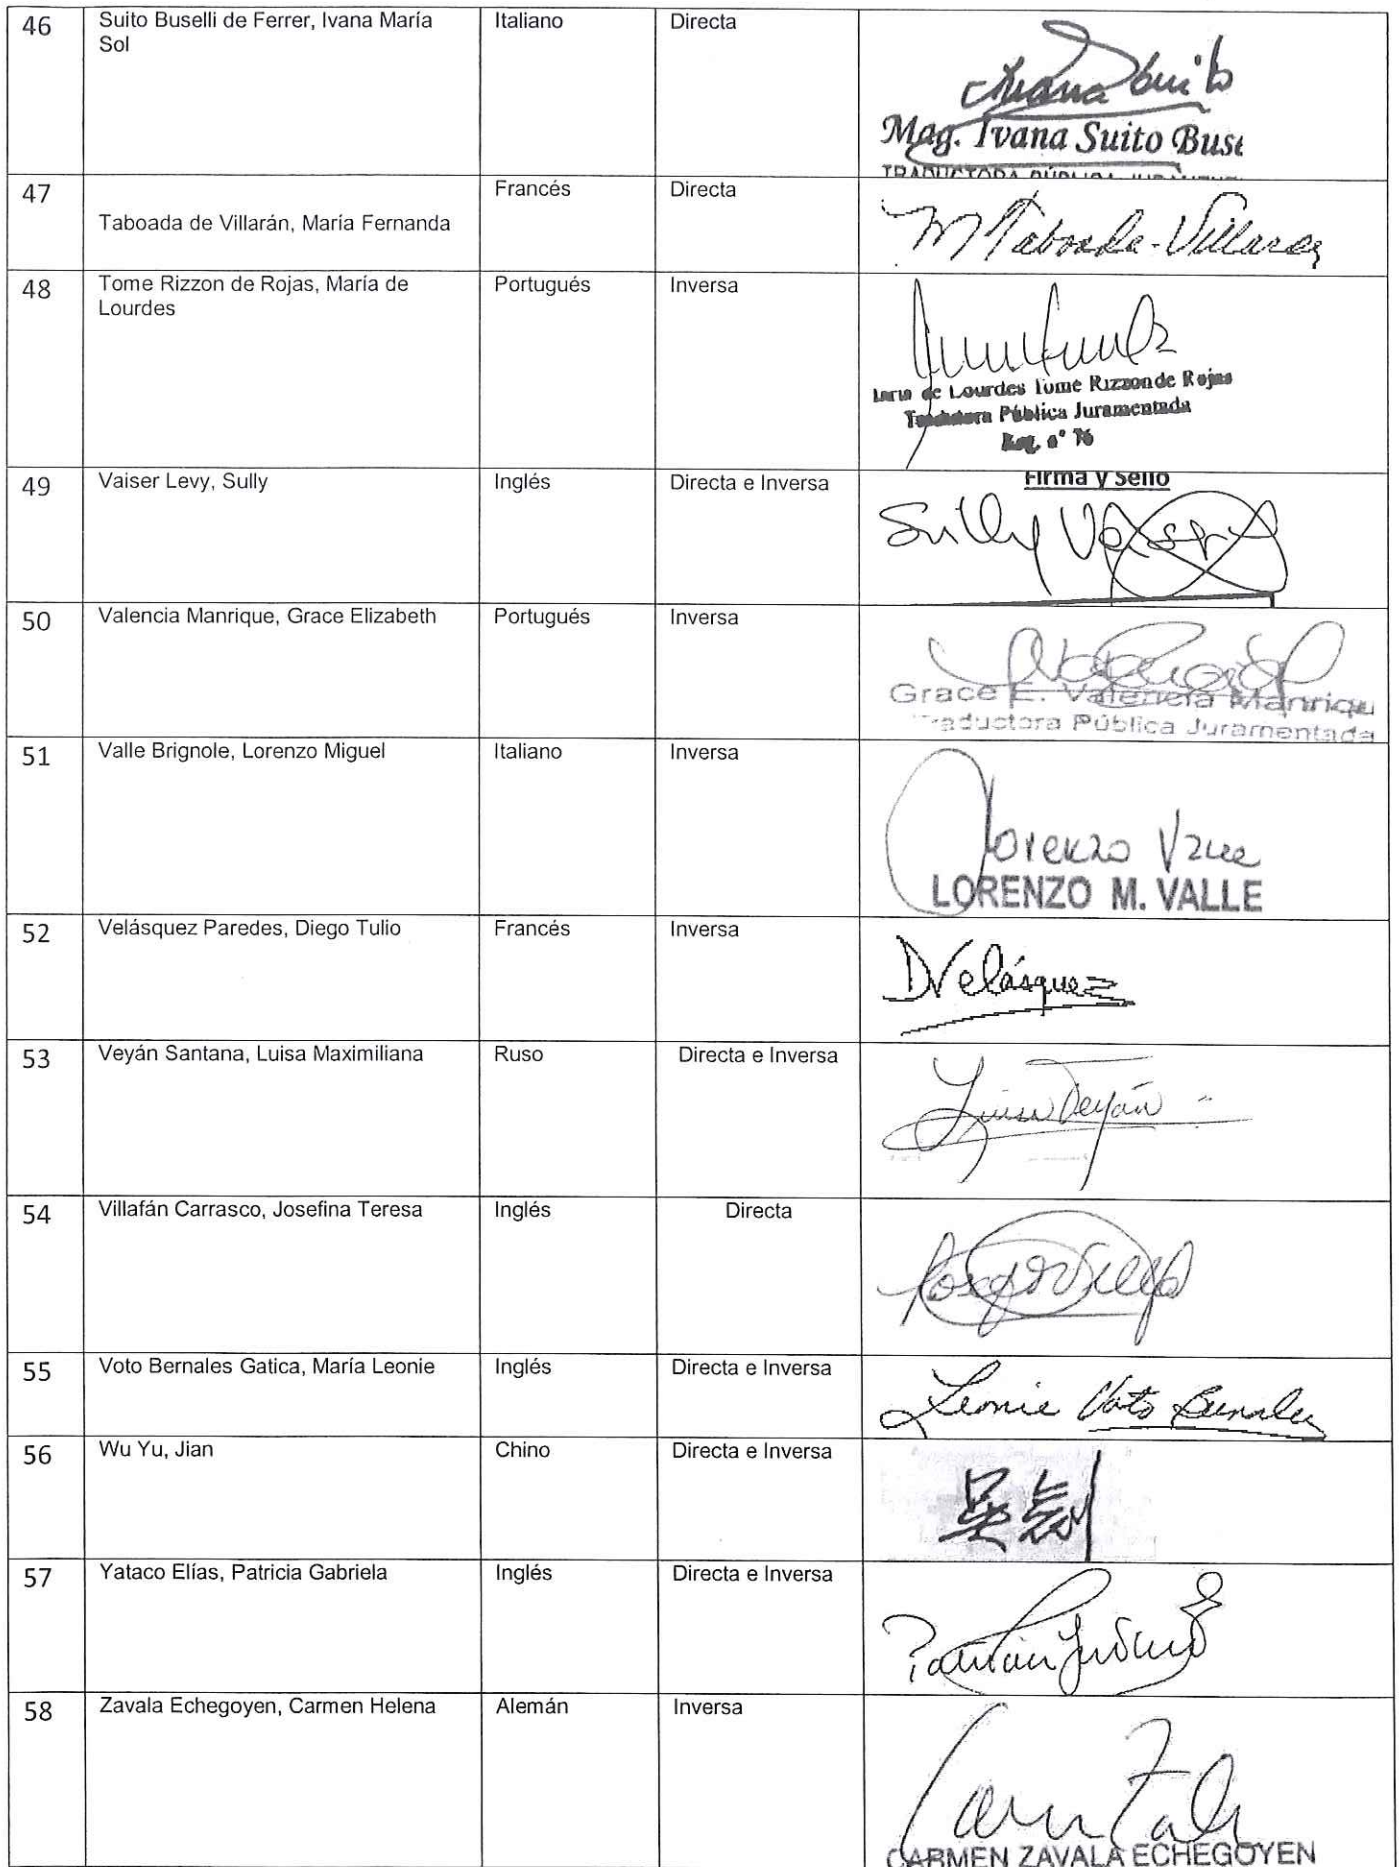 46 Suito Buselli de Ferrer, Ivana María Italiano Directa
Sol
Ivana Suito
Mag. Ivana Suito Buse
TRADUCTORA PÚBLICA
47 Francés Directa
Taboada de Villarán, María Fernanda
M Taboada-Villarán
48 Tome Rizzon de Rojas, María de Portugués Inversa
Lourdes
de Lourdes Tome Rizzon de Rojas
Traductora Pública Juramentada
Reg. n° 76
49 Vaiser Levy, Sully Inglés Directa e Inversa
Firma y Sello
Sully Vaiser
50 Valencia Manrique, Grace Elizabeth Portugués Inversa
Grace E. Valencia Manriqu
Traductora Pública Juramentada
51 Valle Brignole, Lorenzo Miguel Italiano Inversa
Lorenzo Valle
LORENZO M. VALLE
52 Velásquez Paredes, Diego Tulio Francés Inversa
DVelásquez
53 Veyán Santana, Luisa Maximiliana Ruso Directa e Inversa
Luisa Veyán
54 Villafán Carrasco, Josefina Teresa Inglés Directa
55 Voto Bernales Gatica, María Leonie Inglés Directa e Inversa
Leonie Voto Bernales
56 Wu Yu, Jian Chino Directa e Inversa
57 Yataco Elías, Patricia Gabriela Inglés Directa e Inversa
58 Zavala Echegoyen, Carmen Helena Alemán Inversa
CARMEN ZAVALA ECHEGOYEN